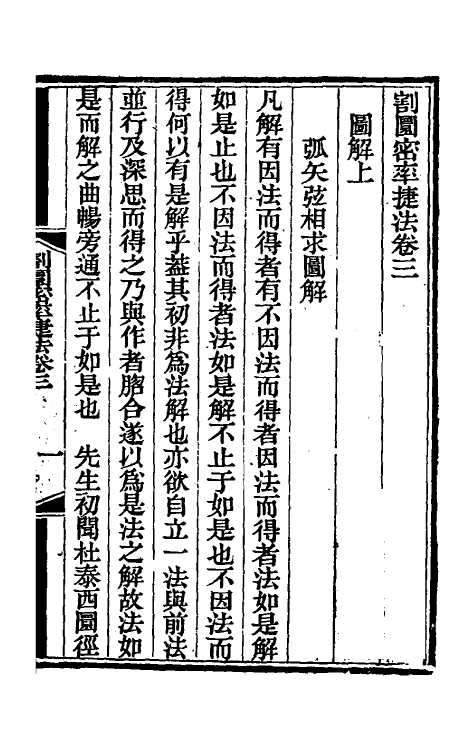 割圜密率捷法卷三
圖解上
弧矢弦相求圖解
凡解有因法而得者有不因法而得者因法而得者法如是解
如是止也不因法而得者法如是解不止于如是也不因法而
得何以有是解乎葢其初非爲法解也亦欲自立一法與前法
並行及深思而得之乃與作者脗合遂以爲是法之解故法如
是而解之曲暢旁通不止于如是也　先生初聞杜泰西圜徑
割圜密率捷法卷三
一